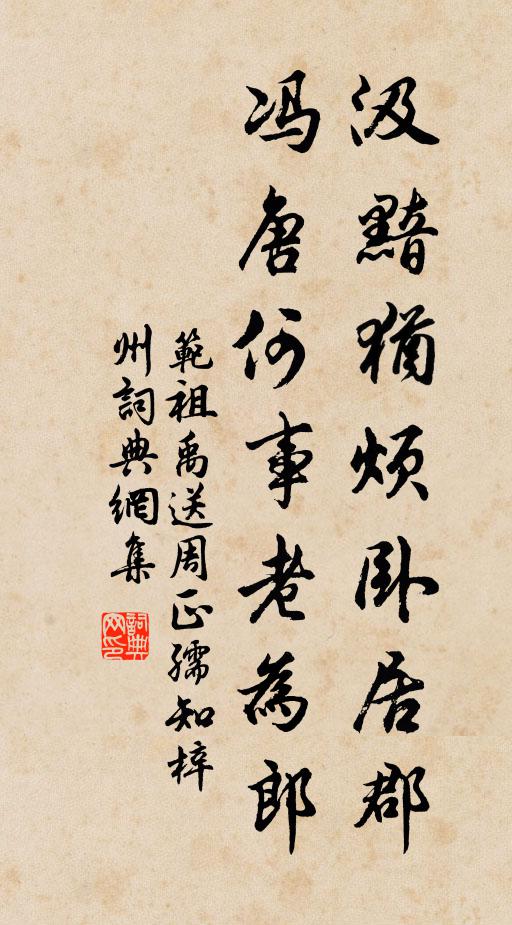 汲黯犹烦卧居郡
冯唐何事老為郎
範祖禹送周正孺知梓
州詞典網集
詞典网印